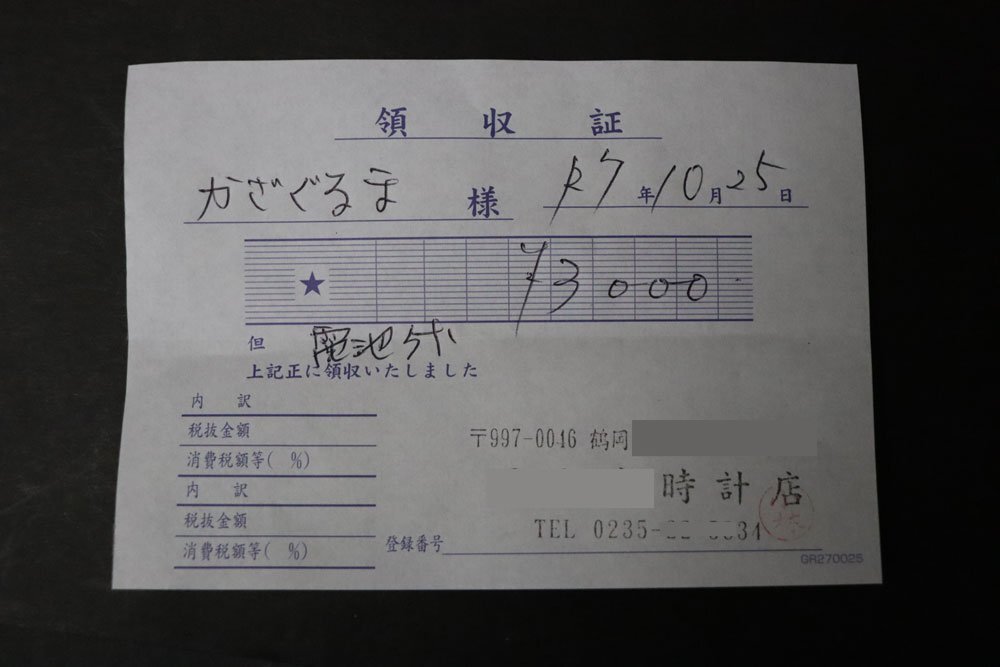 領収証
かざぐるま 様 R7年10月25日
★ ¥3000
但 電池代
上記正に領収いたしました
内訳
税抜金額
消費税額等( %)
内訳
税抜金額
消費税額等( %)
〒997-0046 鶴岡
時計店
TEL 0235-
登録番号
GR270025